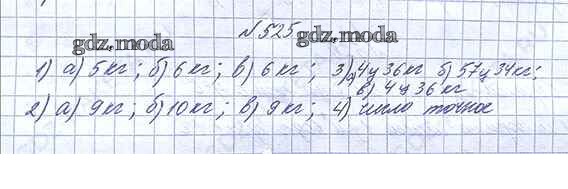 №525
gdz.moda gdz.moda
1) а) 5кг; б) 6кг; в) 6кг; 3) а) 4ц 36кг б) 57ц 34кг;
в) 4ц 36 кг
2) а) 9кг; б) 10кг; в) 9кг; 4) число точное